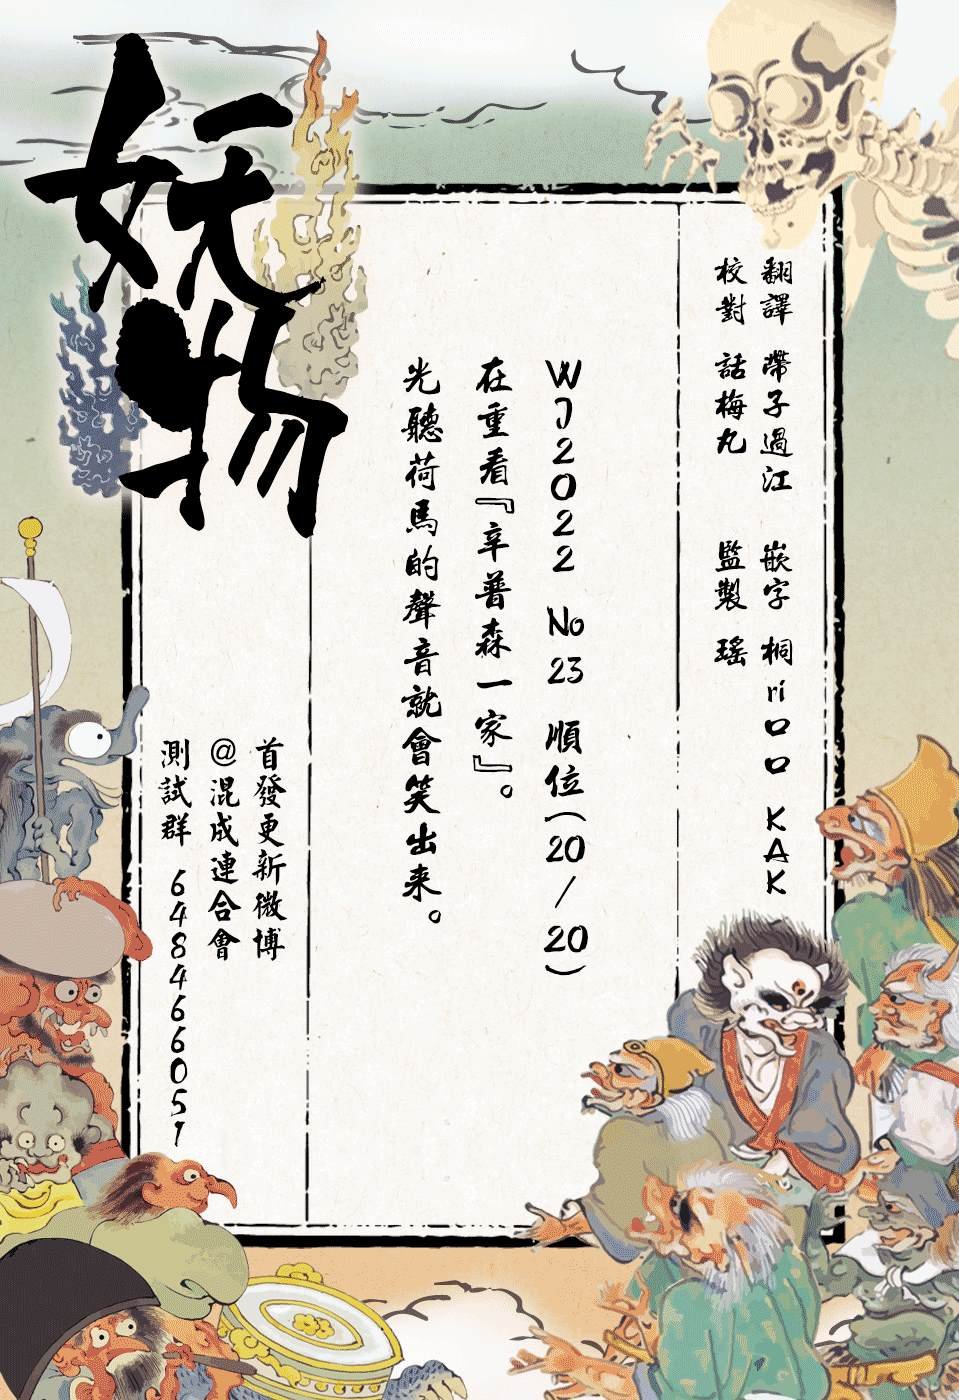 妖物
翻譯 帶子過江 嵌字 桐ri口口 KAK
校對 話梅丸 監製 瑤
WJ2022 No23 順位(20/20)
在重看『辛普森一家』。
光聽荷馬的聲音就會笑出来。
首發更新微博
@混成連合會
測試群 648466051